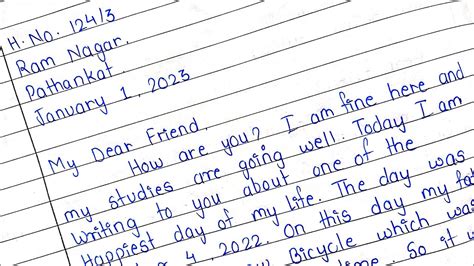 H. No. 124/3
Ram Nagar.
Pathankot.
January 1, 2023
My Dear Friend,
How are you? I am fine here and
my studies are going well. Today I am
writing to you about one of the
Happiest day of my life. The day was
4, 2022. On this day my
Bicycle which was
So it